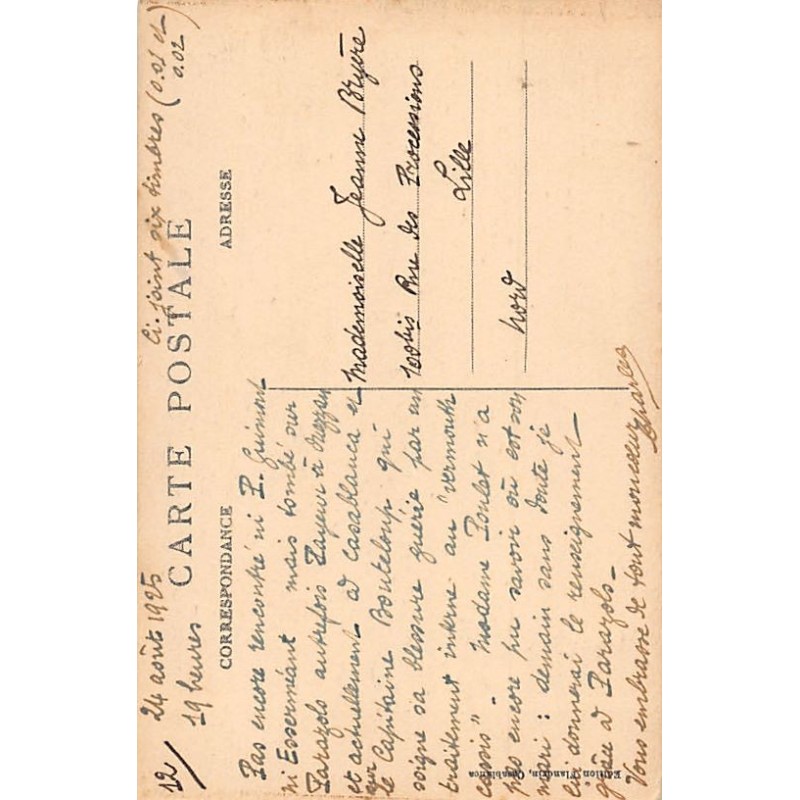 12/ 24 août 1925
19 heures
Ci-joint six timbres (0.01 et
0.02)
CARTE POSTALE
CORRESPONDANCE
ADRESSE
Pas encore rencontré ni P. Guimont
ni Essermeant mais tombé sur
Parazols autrefois Payeur à Ouezzan
et actuellement à Casablanca et
sur
le Capitaine Bouteloup qui
soigne sa blessure guérie par un
traitement interne au "vermouth
cassis" - Madame Poulet n'a
pas encore pu savoir où est son
mari : demain sans doute je
lui donnerai le renseignement
grâce à Parazols -
Vous embrasse de tout mon cœur
Charles
Mademoiselle Jeanne Bryère
100bis Rue des Processions
Lille
Nord
Edition Flandrin, Casablanca